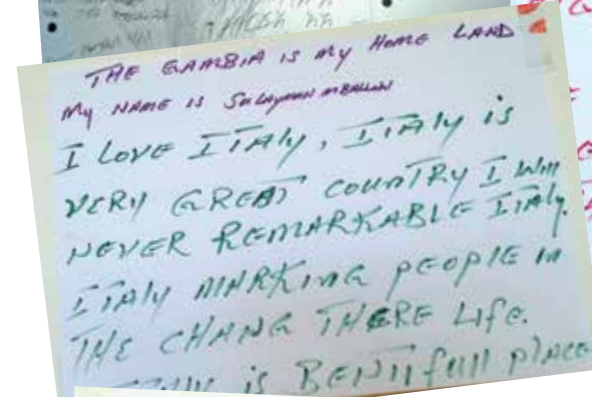 THE GAMBIA IS MY HOME LAND
My NAME IS SULAYMAN
I LOVE ITALY, ITALY is
VERY GREAT COUNTRY I WILL
NEVER REMARKABLE ITALY.
ITALY MARKING PEOPLE IN
THE CHANG THERE LIFE.
is BEATIfull PlACE